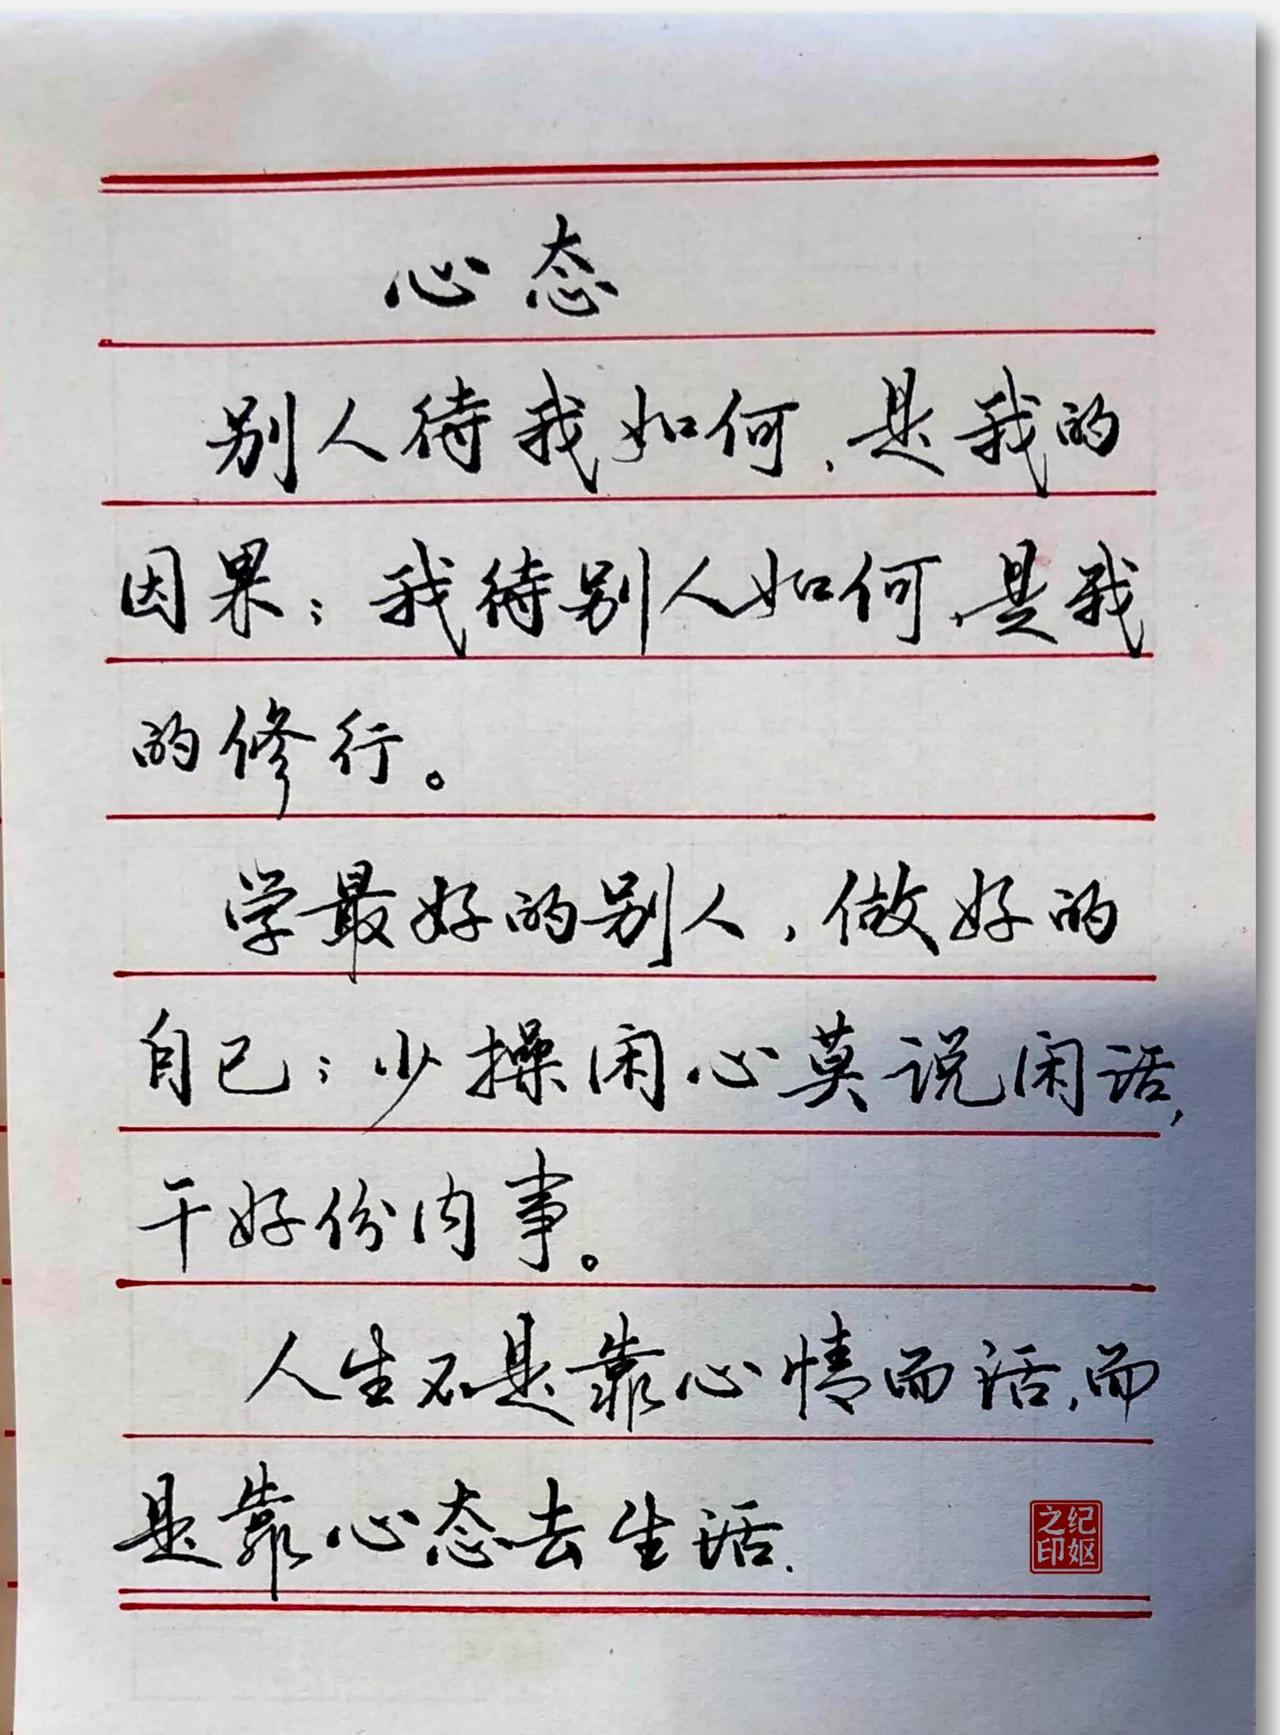 心态
别人待我如何，是我的
因果；我待别人如何，是我
的修行。
学最好的别人，做好的
自己；少操闲心莫说闲话，
干好份内事。
人生不是靠心情而活，而
是靠心态去生活.
纪妪之印